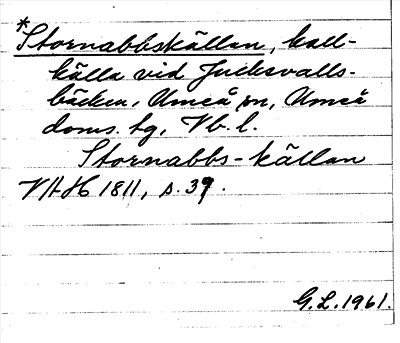 *Stornabbskällan, kall-
källa vid Jucksvalls-
bäcken, Umeå sn, Umeå
doms. tg, Vb. l.
Stornabbs-källan
VAH 1811, s. 39.
G.L. 1961.